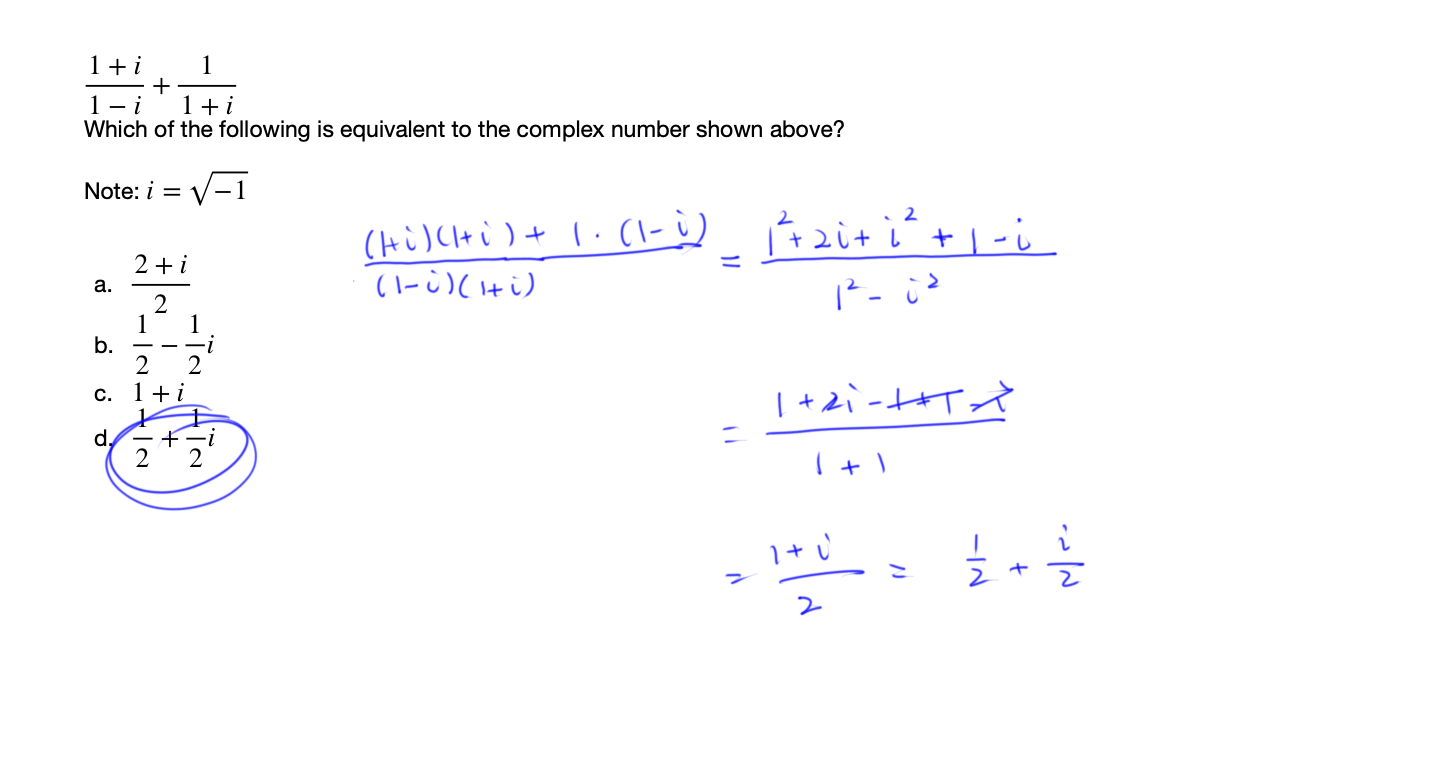 (1+i)/(1−i) + 1/(1+i)
Which of the following is equivalent to the complex number shown above?
Note: i = √−1
((1+i)(1+i) + 1·(1−i))/((1−i)(1+i)) = (1²+2i+i²+1−i)/(1²−i²)
a. (2+i)/2
b. 1/2 − 1/2 i
c. 1+i
d. 1/2 + 1/2 i
= (1+2i−1+1−i)/(1+1)
= (1+i)/2 = 1/2 + i/2